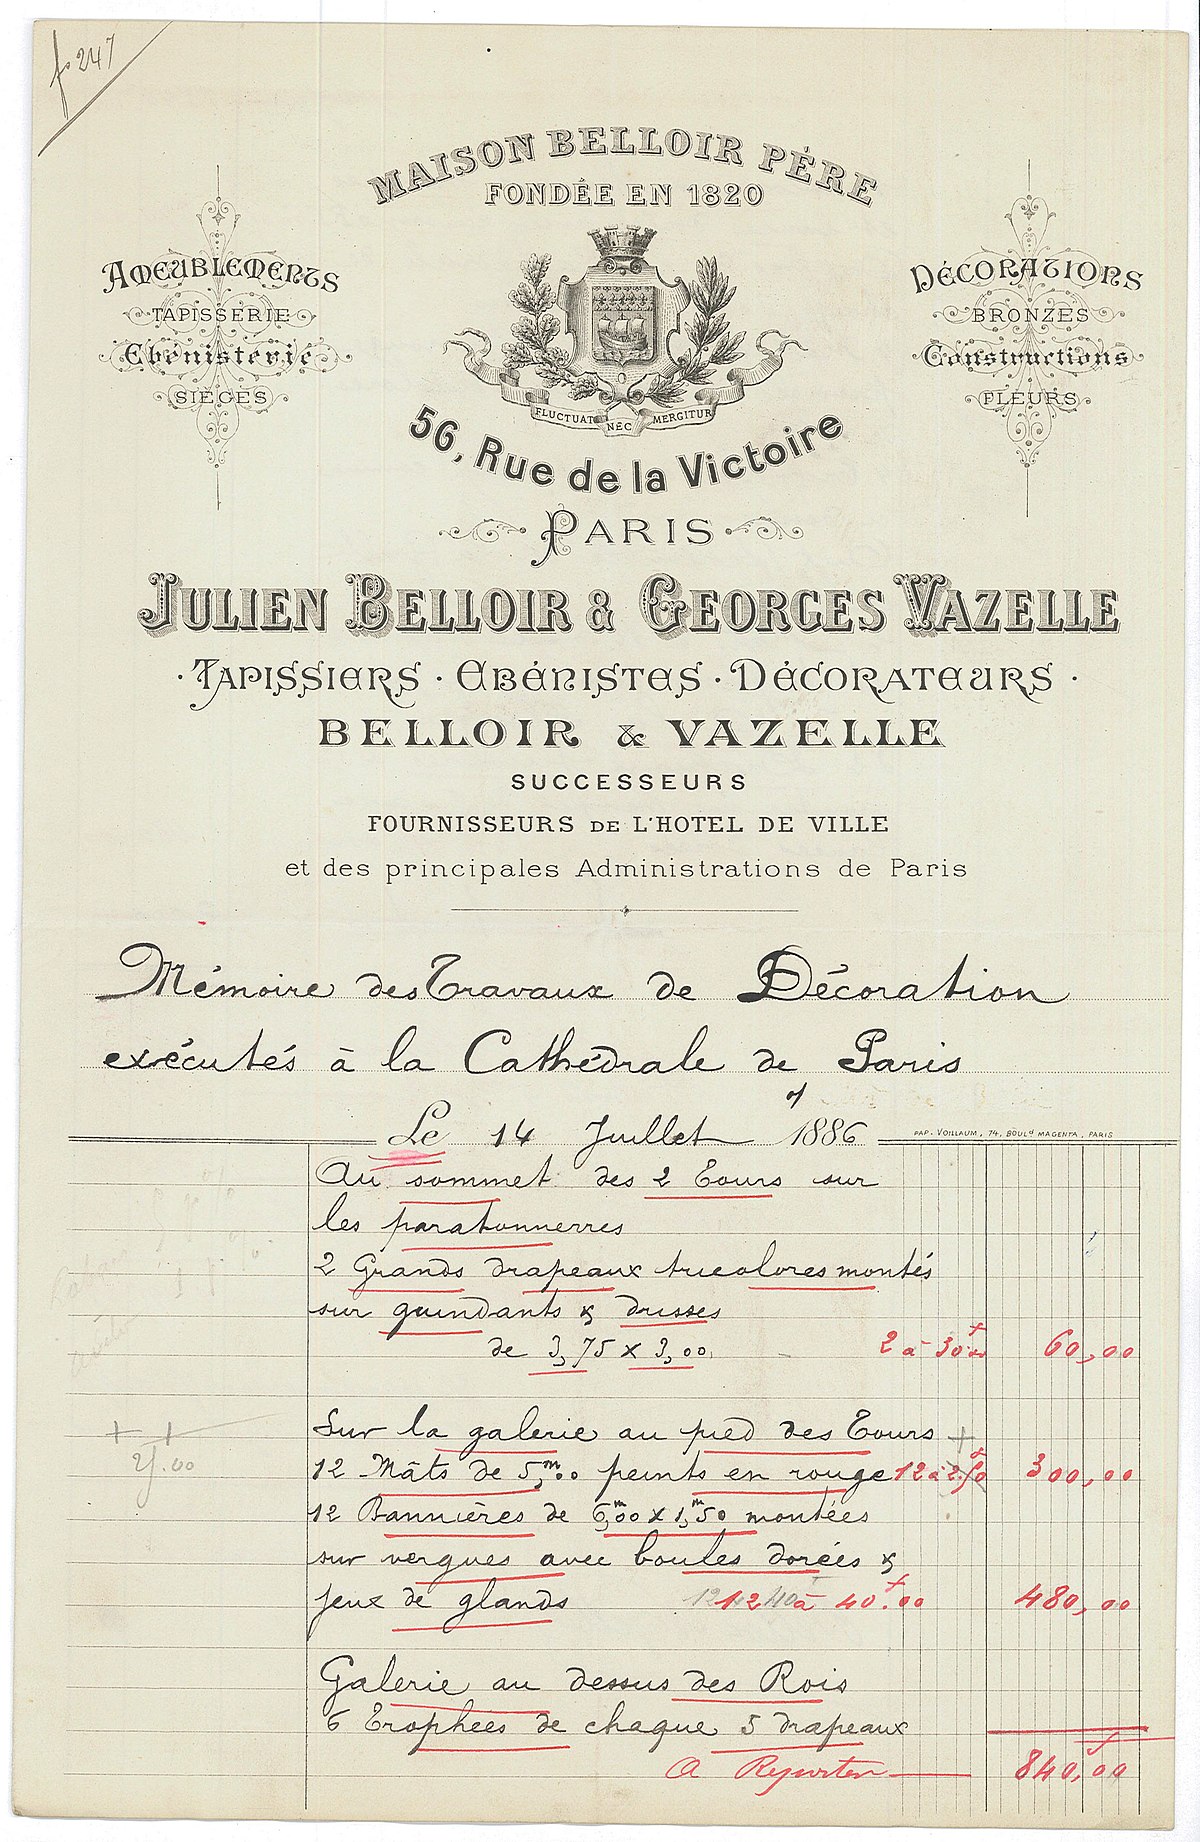 fo 247
MAISON BELLOIR PÈRE
FONDÉE EN 1820
AMEUBLEMENTS
TAPISSERIE
Ebénisterie
SIÈGES
DÉCORATIONS
BRONZES
Constructions
FLEURS
FLUCTUAT NEC MERGITUR
56, Rue de la Victoire
PARIS
JULIEN BELLOIR & GEORGES VAZELLE
· TAPISSIERS · EBÉNISTES · DÉCORATEURS ·
BELLOIR & VAZELLE
SUCCESSEURS
FOURNISSEURS DE L'HOTEL DE VILLE
et des principales Administrations de Paris
Mémoire des Travaux de Décoration
exécutés à la Cathédrale de Paris
Le 14 Juillet 1886
PAP. VOILLAUM, 74, BOULd MAGENTA, PARIS
Au sommet des 2 Tours sur
les paratonnerres
2 Grands drapeaux tricolores montés
sur guindants & drisses
de 3,75 x 3,00 2 à 30 60,00
Sur la galerie au pied des Tours
25.00
12 Mâts de 5,m00 peints en rouge 12 à 300,00
12 Bannières de 6,m00 x 1,m50 montées
sur vergues avec boules dorées &
jeux de glands 12 à 40.00 480,00
Galerie au dessus des Rois
6 Trophées de chaque 5 drapeaux
A Reporter 840,00